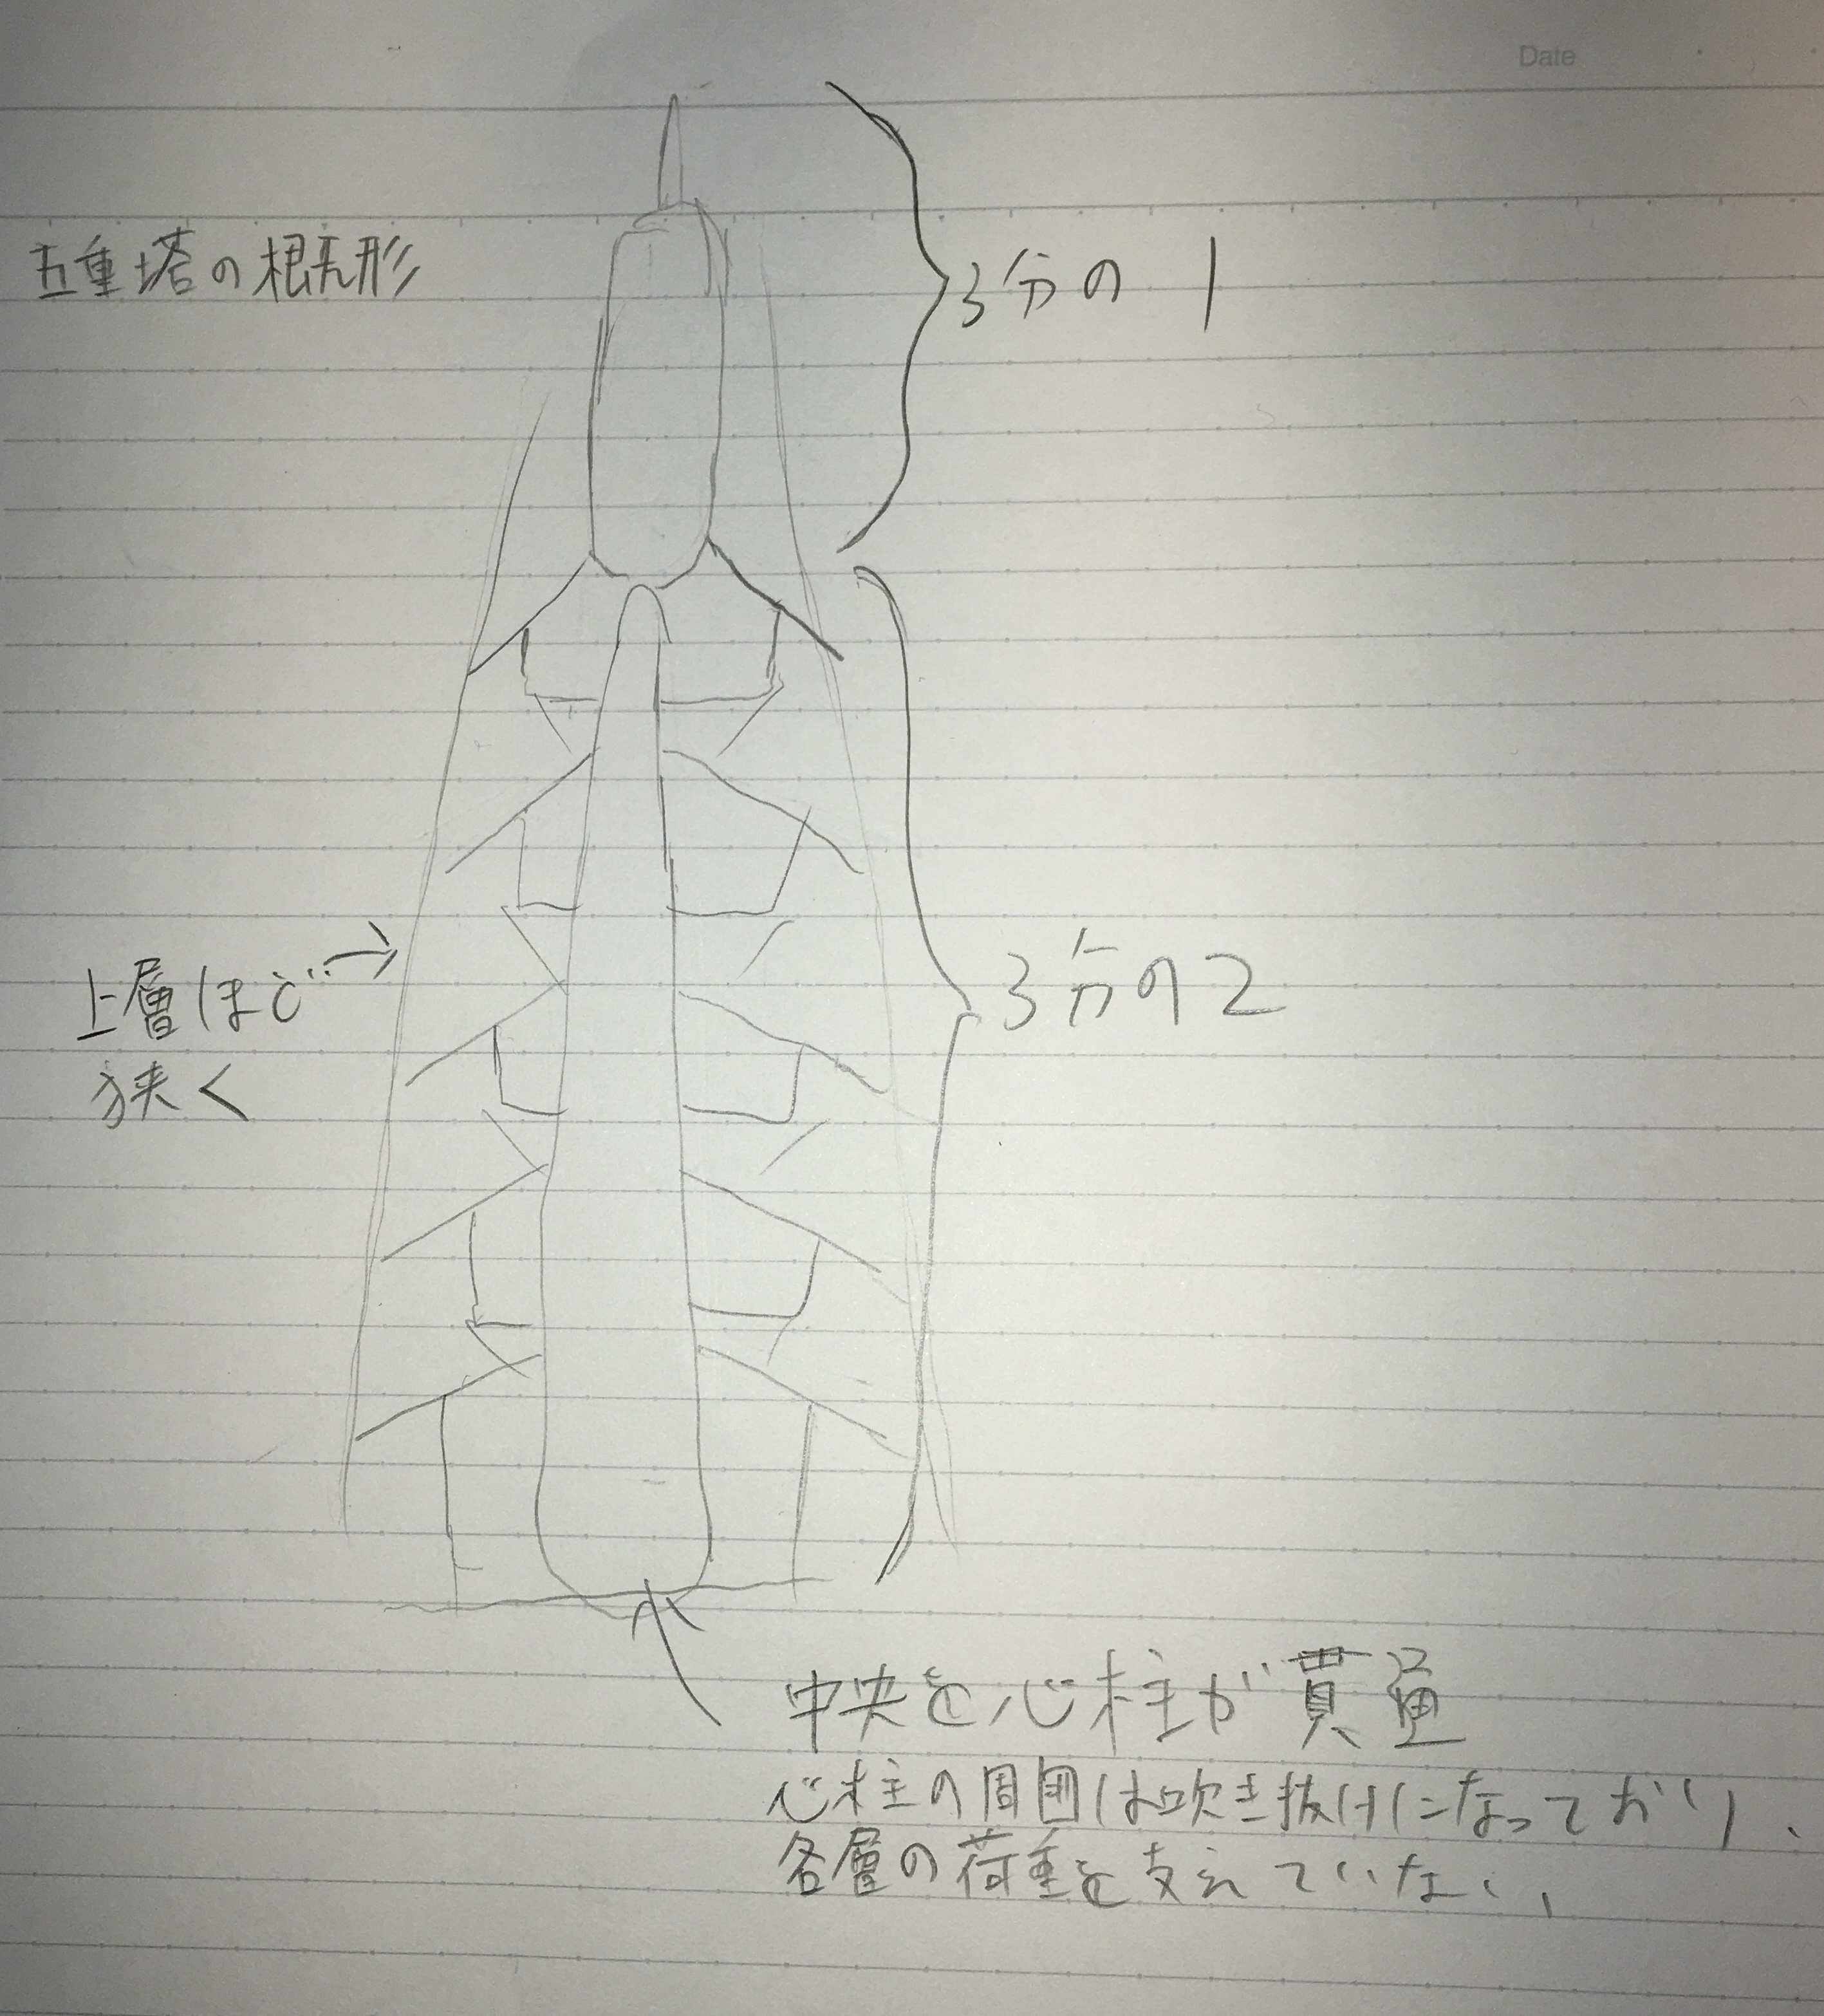 Date
五重塔の概形
3分の1
上層ほど
狭く
3分の2
中央を心柱が貫通
心柱の周囲は吹き抜けになっており、
各層の荷重を支えていない、